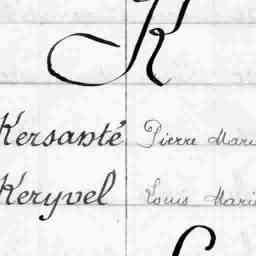 K
Kersanté Pierre Mari
Keryvel Louis Mari